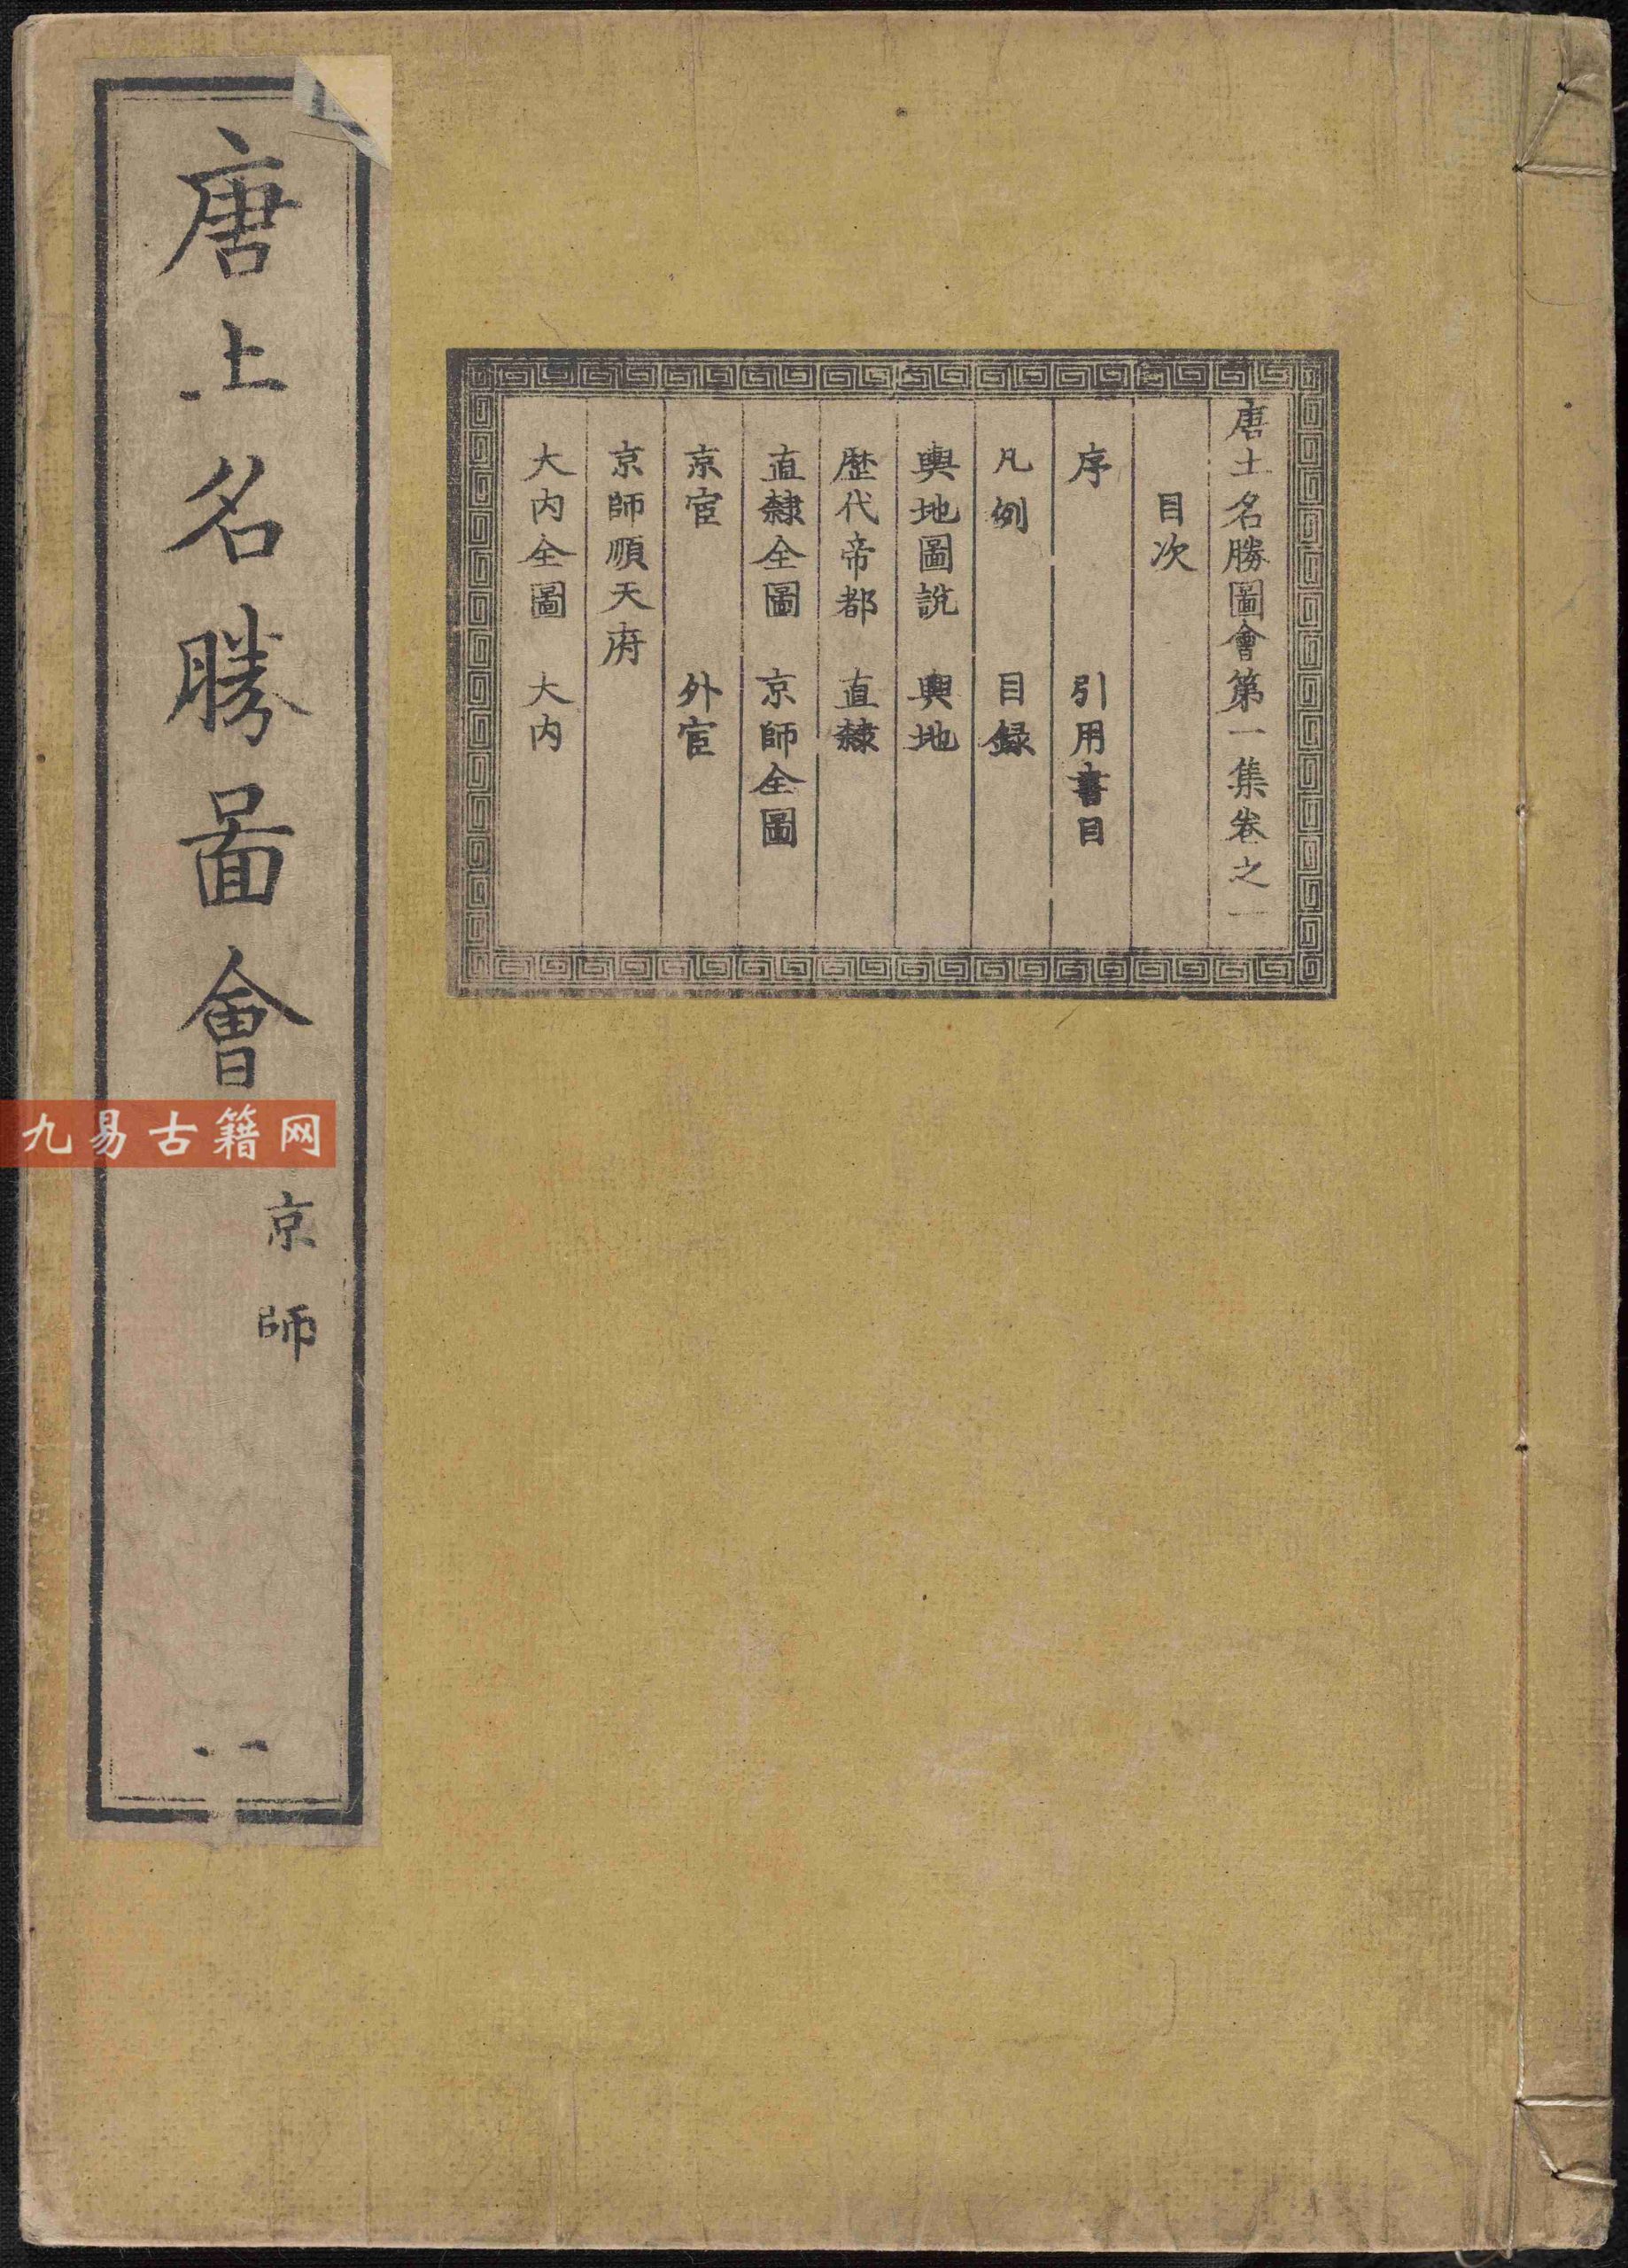 唐土名勝圖會第一集卷之一
目次
序 引用書目
凡例 目録
輿地圖説 輿地
歴代帝都 直隸
直隸全圖 京師全圖
京官 外官
京師順天府
大内全圖 大内
唐土名勝圖會
京師
一
九易古籍网